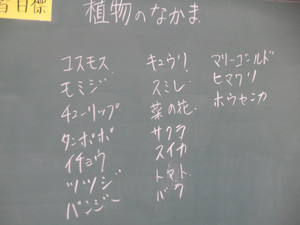 目標
植物のなかま
コスモス
モミジ
チューリップ
タンポポ
イチョウ
ツツジ
パンジー
キュウリ
スミレ
菜の花
サクラ
スイカ
トマト
バラ
マリーゴールド
ヒマワリ
ホウセンカ